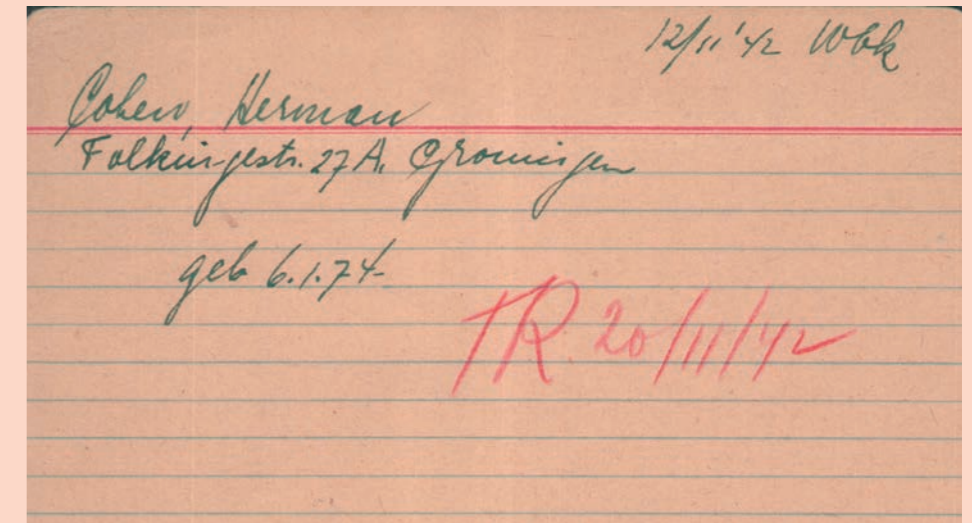 12/11 '42 Wbk
Cohen, Herman
Folkingestr. 27A. Groningen
geb 6.1.74
TR. 20/11/42